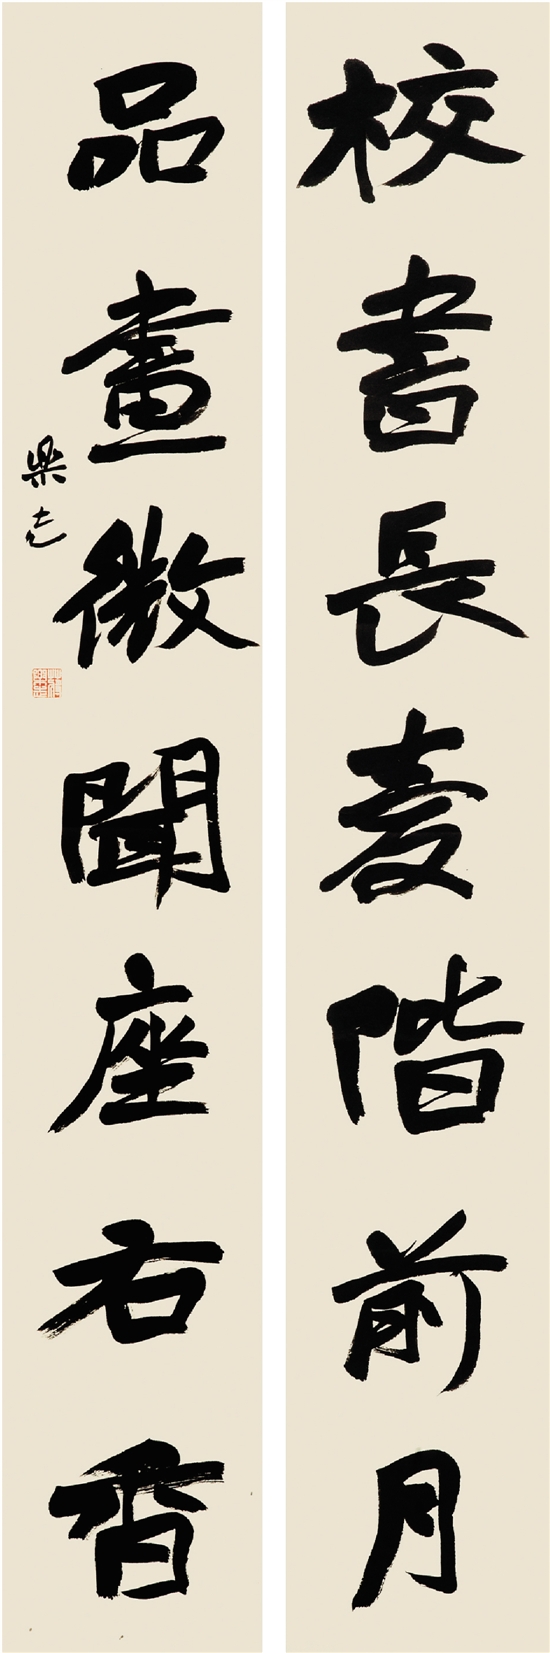 校書長愛階前月
品畫微聞座右香